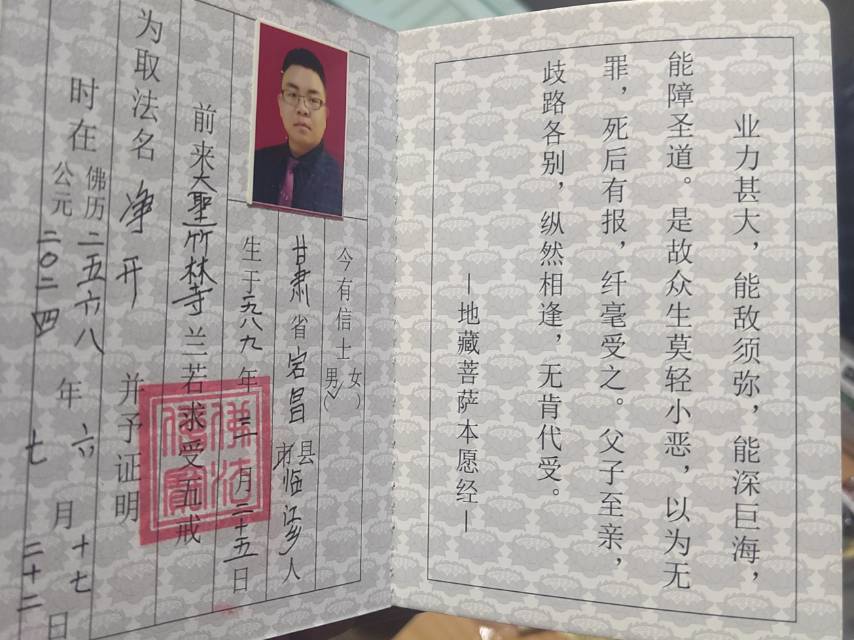 业力甚大，能敌须弥，能深巨海，
能障圣道。是故众生莫轻小恶，以为无
罪，死后有报，纤毫受之。父子至亲，
歧路各别，纵然相逢，无肯代受。
—地藏菩萨本愿经—
今有信士（女男✓）
甘肃省宕昌县市临江乡人
生于一九八九年三月二十五日
前来大聖竹林寺兰若求受五戒
为取法名净开 并予证明
时在佛历二五六八年六月十七日
公元二〇二四 七 二十二
佛法
僧寶